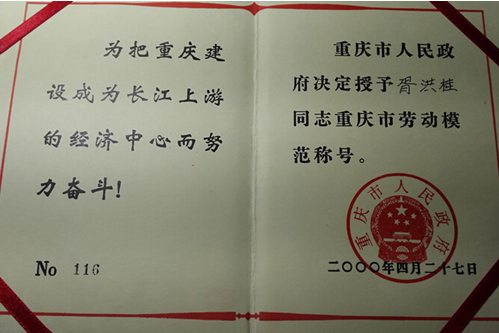 为把重庆建
设成为长江上游
的经济中心而努
力奋斗!
No 116
重庆市人民政
府决定授予胥洪桂
同志重庆市劳动模
范称号。
重庆市人民政府
二〇〇〇年四月二十七日